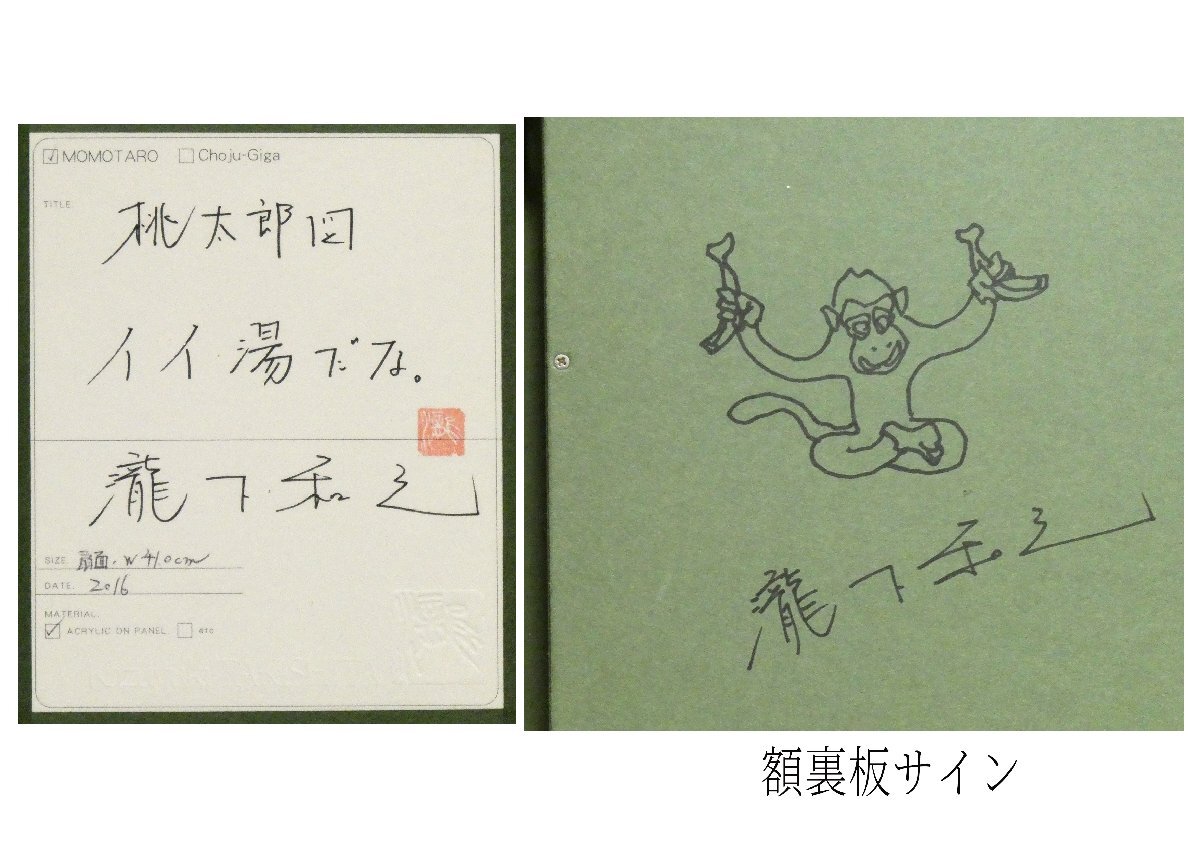 ☑ MOMOTARO ☐ Choju-Giga
TITLE.
桃太郎図
イイ湯だな。
瀧下和之
SIZE. 扇面・W41.0cm
DATE. 2016
MATERIAL.
☑ ACRYLIC ON PANEL. ☐ etc
瀧下和之
額裏板サイン